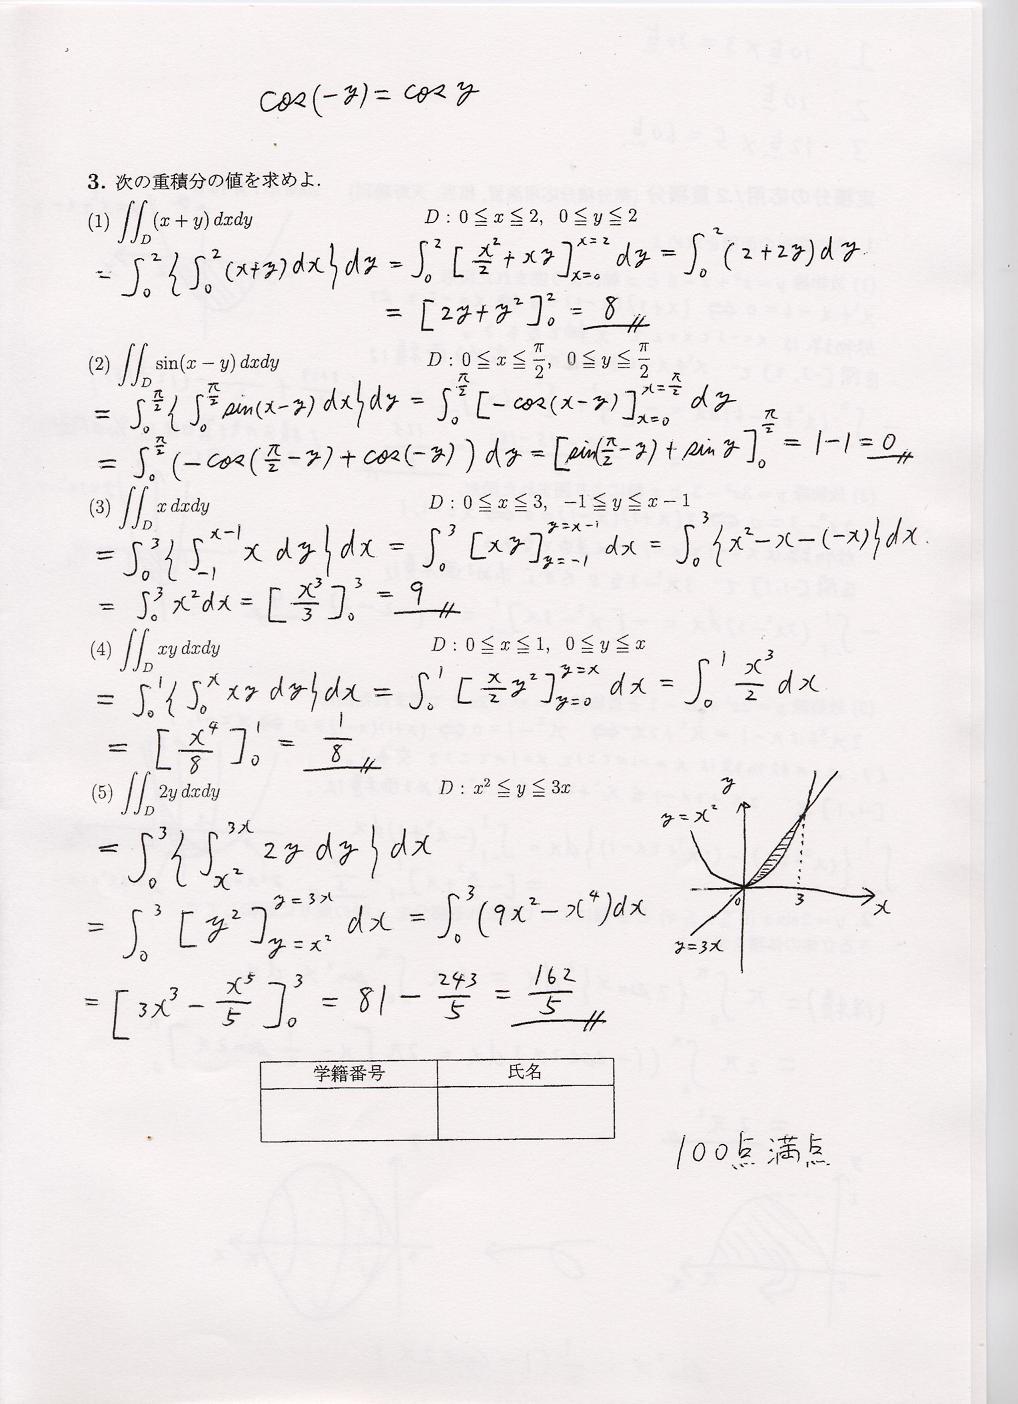 cos(-y) = cos y
3. 次の重積分の値を求めよ.
(1) ∬_D (x + y) dxdy  D : 0 ≦ x ≦ 2, 0 ≦ y ≦ 2
= ∫_0^2 { ∫_0^2 (x+y) dx } dy = ∫_0^2 [ x^2/2 + xy ]_{x=0}^{x=2} dy = ∫_0^2 (2+2y) dy
= [ 2y + y^2 ]_0^2 = 8
(2) ∬_D sin(x − y) dxdy  D : 0 ≦ x ≦ π/2, 0 ≦ y ≦ π/2
= ∫_0^{π/2} { ∫_0^{π/2} sin(x-y) dx } dy = ∫_0^{π/2} [ -cos(x-y) ]_{x=0}^{x=π/2} dy
= ∫_0^{π/2} ( -cos(π/2 - y) + cos(-y) ) dy = [ sin(π/2 - y) + sin y ]_0^{π/2} = 1-1 = 0
(3) ∬_D x dxdy  D : 0 ≦ x ≦ 3, −1 ≦ y ≦ x − 1
= ∫_0^3 { ∫_{-1}^{x-1} x dy } dx = ∫_0^3 [ xy ]_{y=-1}^{y=x-1} dx = ∫_0^3 { x^2 - x - (-x) } dx.
= ∫_0^3 x^2 dx = [ x^3/3 ]_0^3 = 9
(4) ∬_D xy dxdy  D : 0 ≦ x ≦ 1, 0 ≦ y ≦ x
= ∫_0^1 { ∫_0^x xy dy } dx = ∫_0^1 [ x/2 y^2 ]_{y=0}^{y=x} dx = ∫_0^1 x^3/2 dx
= [ x^4/8 ]_0^1 = 1/8
(5) ∬_D 2y dxdy  D : x^2 ≦ y ≦ 3x
= ∫_0^3 { ∫_{x^2}^{3x} 2y dy } dx
= ∫_0^3 [ y^2 ]_{y=x^2}^{y=3x} dx = ∫_0^3 (9x^2 - x^4) dx
= [ 3x^3 - x^5/5 ]_0^3 = 81 - 243/5 = 162/5
y
y=x^2
0
3
x
y=3x
学籍番号 氏名
100点満点